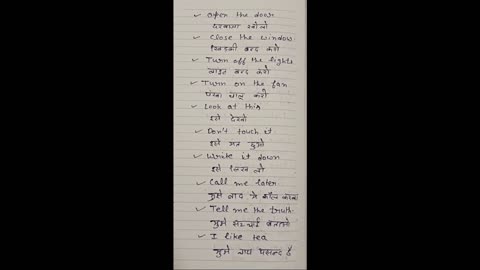 ✓ Open the door
दरवाजा खोलो
✓ Close the window
खिड़की बन्द करो
✓ Turn off the lights
लाइट बन्द करो
✓ Turn on the fan
पंखा चालू करो
✓ Look at this
इसे देखो
✓ Don't touch it
इसे मत छुओ
✓ Write it down
इसे लिख लो
✓ Call me later
मुझे बाद में कॉल करना
✓ Tell me the truth
मुझे सच्चाई बताओ
✓ I like tea
मुझे चाय पसन्द है